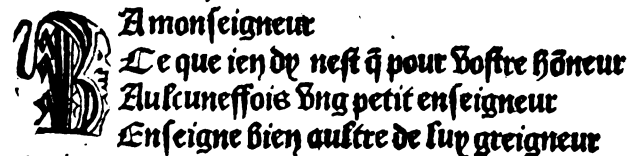 A monſeigneur
Ce que ien dy neſt q̄ pour voſtre hōneur
Auſcuneffois vng petit enſeigneur
Enſeigne bien auſtre de luy greigneur